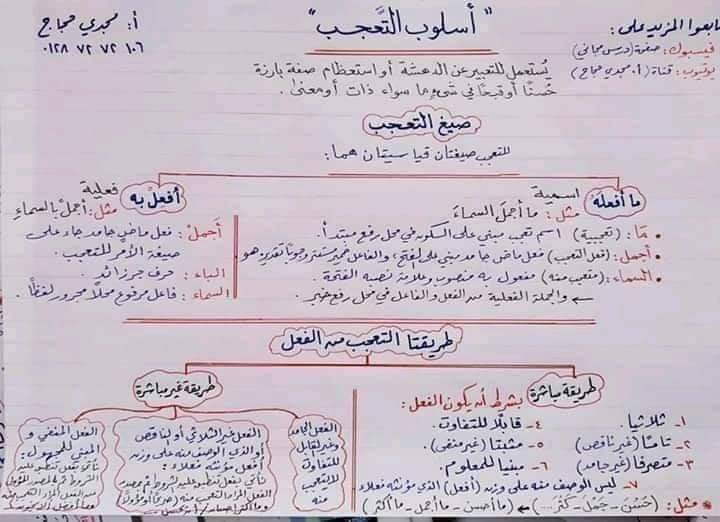 "أسلوب التَّعجب"
أ: مجدي حجاج
٠١٢٨ ٧٢ ٧٢ ١٠٦
تابعوا المزيد على:
فيسبوك: صفحة (درس مجاني)
يوتيوب: قناة (أ. مجدي حجاج)
يُستعمل للتعبير عن الدهشة أو استعظام صفة بارزة
حُسنًا أو قبحًا في شيءٍ ما سواء ذات أو معنى.
صيغ التعجب
للتعجب صيغتان قياسيتان هما:
ما أفعلَهُ
اسمية
مثل: ما أجملَ السماءَ
• مَا: (تعجبية) اسم تعجب مبني على السكون في محل رفع مبتدأ.
• أجملَ: (فعل التعجب) فعل ماضٍ جامد مبني على الفتح، والفاعل ضمير مستتر وجوبًا تقديره هو
• السماءَ: (متعجب منه) مفعول به منصوب وعلامة نصبه الفتحة.
← والجملة الفعلية من الفعل والفاعل في محل رفع خبر.
أفعلْ به
فعلية
مثل: أجملْ بالسماءِ
أجملْ: فعل ماضٍ جامد جاء على
صيغة الأمر للتعجب.
الباء: حرف جر زائد.
السماء: فاعل مرفوع محلًا مجرور لفظًا.
طريقتا التعجب من الفعل
طريقة مباشرة
بشرط أن يكون الفعل:
١- ثلاثيا. ٤- قابلًا للتفاوت.
٢- تامًا (غير ناقص) ٥- مثبتا (غير منفي).
٣- متصرفا (غير جامد) ٦- مبنيا للمعلوم.
٧- ليس الوصف منه على وزن (أفعل) الذي مؤنثه فعلاء
* مثل: (حَسُنَ - جَمُلَ - كَثُرَ...) ← (ما أحسن - ما أجمل - ما أكثر)
طريقة غير مباشرة
الفعل الجامد
وغير القابل
للتفاوت
لا يُتعجب
منه
الفعل غير الثلاثي أو الناقص
أو الذي الوصف منه على وزن
أفعل مؤنثه فعلاء:
نأتي بفعل تنطبق عليه الشروط ثم مصدر
الفعل المراد التعجب منه (صريحًا أو مؤولًا)
الفعل المنفي و
المبني للمجهول:
نأتي بفعل تنطبق عليه
الشروط ثم المصدر المؤول
من الفعل المراد التعجب منه